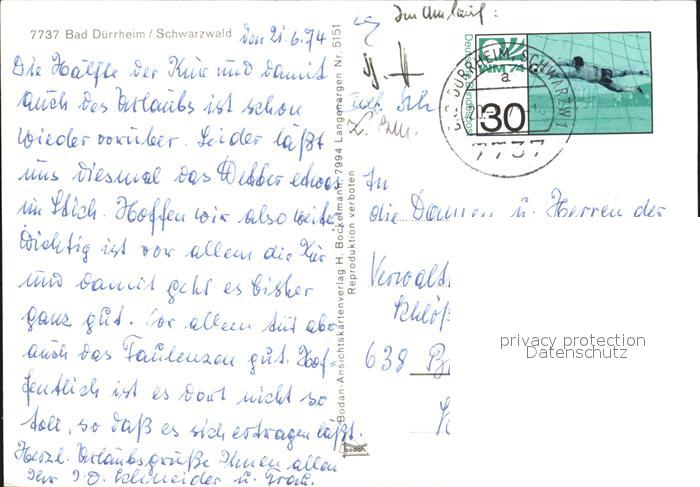 7737 Bad Dürrheim / Schwarzwald
den 21.6.74
Die Hälfte der Kur und damit
auch des Urlaubs ist schon
wieder vorüber. Leider läßt
uns diesmal das Wetter etwas
im Stich. Hoffen wir also weiter.
Wichtig ist vor allem die Kur
und damit geht es bisher
ganz gut. Vor allem tut aber
auch das Faulenzen gut. Hof-
fentlich ist es dort nicht so
toll, so daß es sich ertragen läßt.
Herzl. Urlaubsgrüße Ihnen allen
Ihr J.O. Schneider u. Frau.
Bodan-Ansichtskartenverlag H. Bockelmann, 7994 Langenargen Nr. 5151
Reproduktion verboten
bodan
Im Umlauf:
Deutsche Bundespost
WM 74
30
BAD DÜRRHEIM, SCHWARZW 1
a
7737
An
die Damen u. Herren der
Verwalt
Schlöß
638 B
privacy protection
Datenschutz